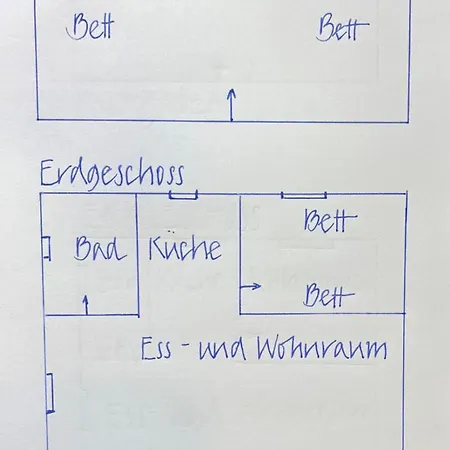 Bett Bett
Erdgeschoss
Bett
Bad Küche
Bett
Ess - und Wohnraum